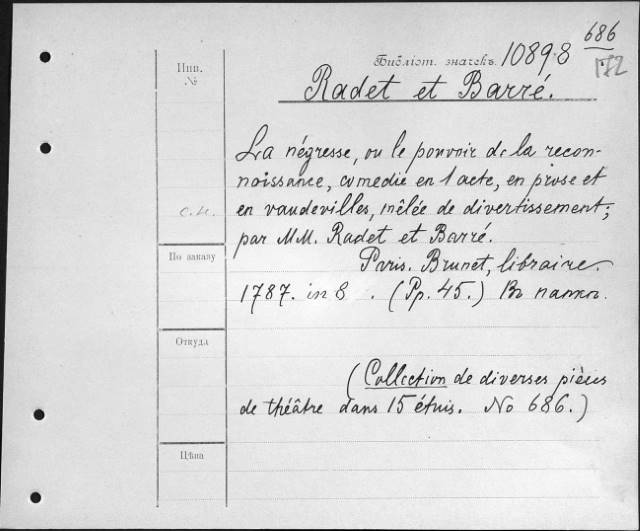 686
172
Инв.
№
Библіот. значекъ 10898
Radet et Barré.
La négresse, ou le pouvoir de la recon-
noissance, comedie en 1 acte, en prose et
en vaudevilles, mêlée de divertissement;
par MM. Radet et Barré.
Paris. Brunet, libraire.
1787. in 8 . (Pp. 45.) Въ папкѣ.
По заказу
Откуда
(Collection de diverses pièces
de théâtre dans 15 étuis. No 686.)
Цѣна